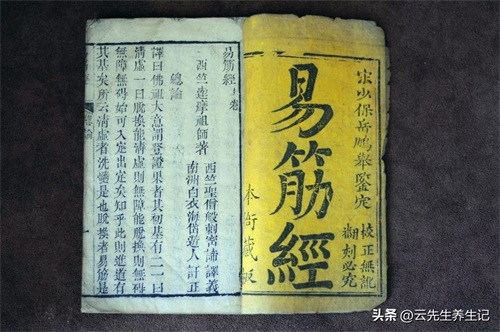 宋少保岳鵬舉鑒定
校正無訛
翻刻必究
易筋經
本衙藏板
易筋經上卷
西竺達摩祖師著
西竺聖僧般剌密諦譯義
南洲白衣海岱遊人訂正
總論
譯曰佛祖大意謂登證果者其初基有二一曰
清虛一曰脫換能清虛則無障能脫換則無碍
無障無碍始可入定出定矣知乎此則進道有
其基矣所云清虛者洗髓是也脫換者易筋是
總論
头条 @云先生养生记